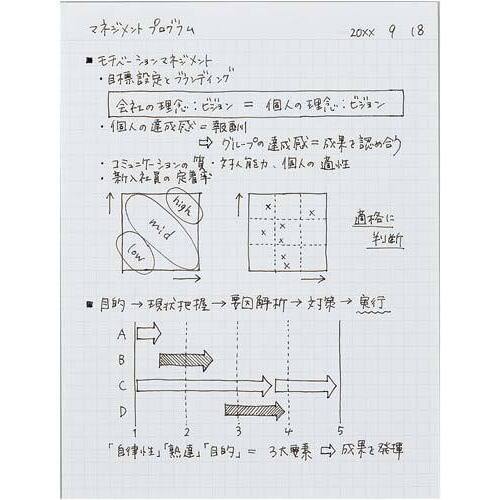 マネジメントプログラム 20XX 9 18
■ モチベーションマネジメント
・目標設定とブランディング
会社の理念:ビジョン = 個人の理念:ビジョン
・個人の達成感=報酬
⇨ グループの達成感=成果を認め合う
・コミュニケーションの質・対人能力、個人の適性
・新入社員の定着率
high
mid
low
適格に
判断
■ 目的→現状把握→要因解析→対策→実行
A
B
C
D
1 2 3 4 5
「自律性」「熟達」「目的」= 3大要素 ⇨ 成果を発揮